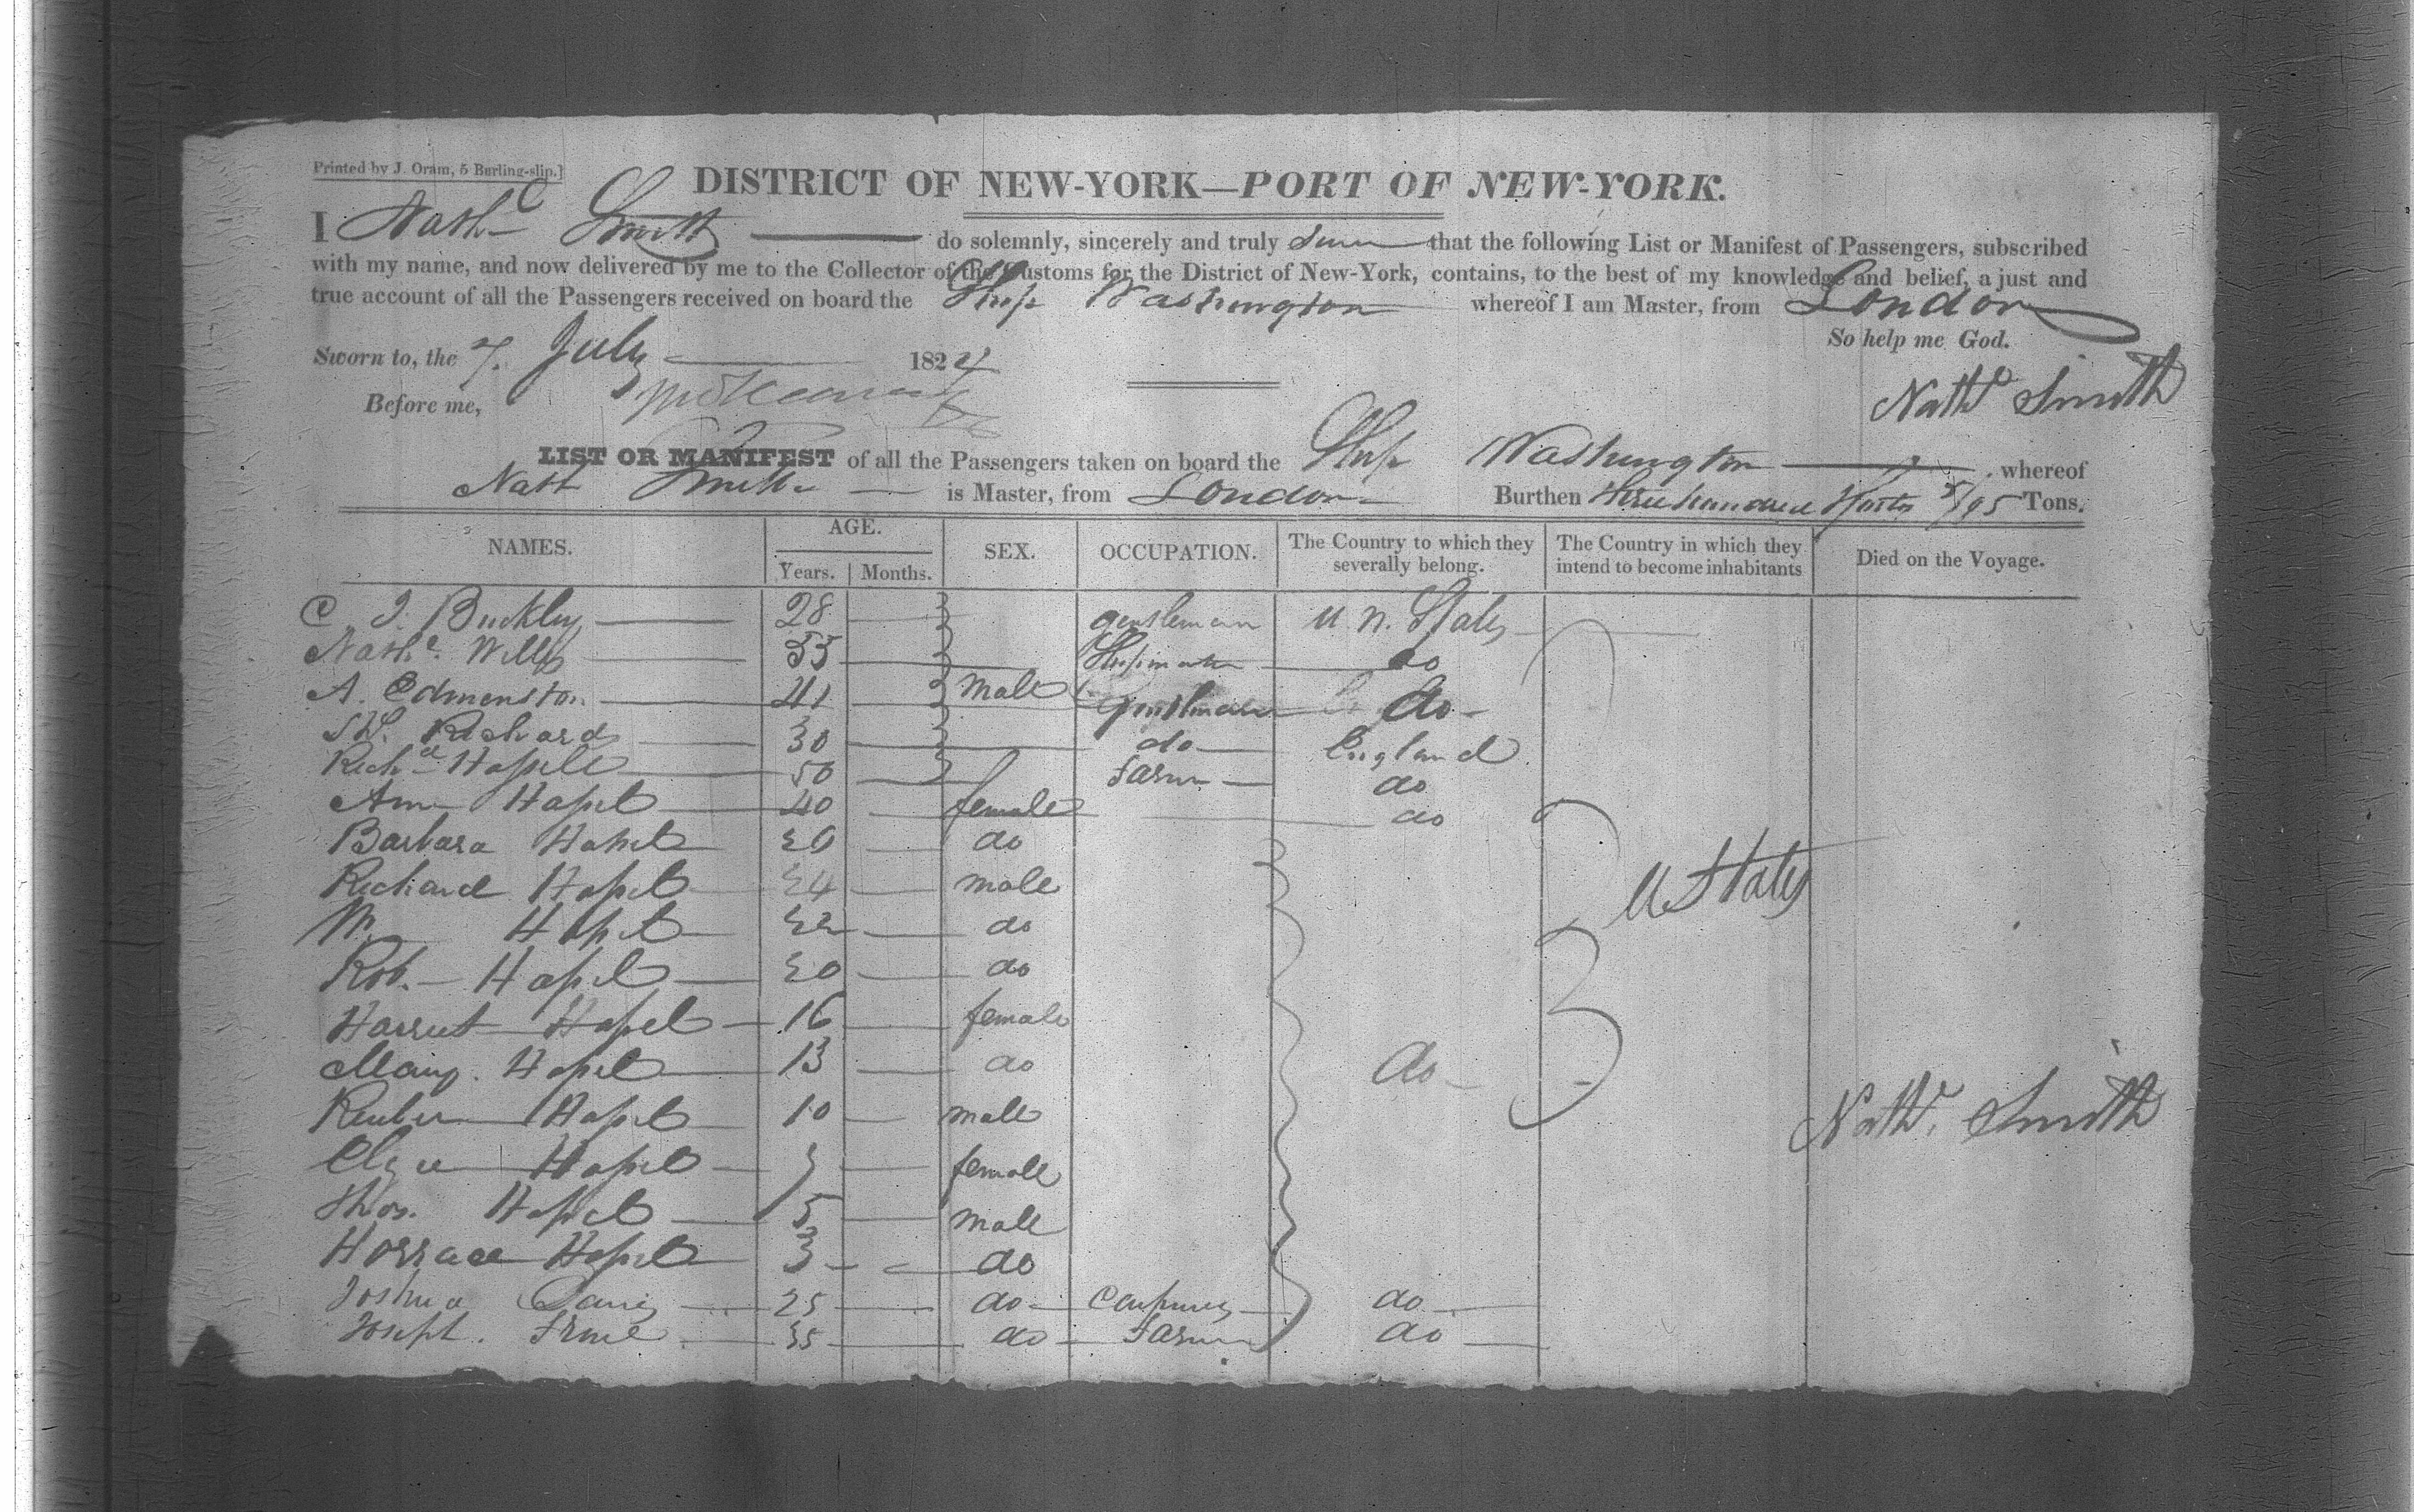 Printed by J. Oram, 5 Burling-slip.]
DISTRICT OF NEW-YORK—PORT OF NEW-YORK.
I Nathl Smith do solemnly, sincerely and truly swear that the following List or Manifest of Passengers, subscribed
with my name, and now delivered by me to the Collector of the Customs for the District of New-York, contains, to the best of my knowledge and belief, a just and
true account of all the Passengers received on board the Ship Washington whereof I am Master, from London
So help me God.
Sworn to, the 7. July 1824
Nathl Smith
Before me,
LIST OR MANIFEST of all the Passengers taken on board the Ship Washington whereof
Nath Smith is Master, from London Burthen three hundred /95 Tons.
NAMES. AGE. Years. Months. SEX. OCCUPATION. The Country to which they severally belong. The Country in which they intend to become inhabitants Died on the Voyage.
C. J. Buckley 28 gentleman U. n. States
Nathl. Wills 33 Shipmaster do
A. Edmenston 41 male gentleman do
Richards 30 do England
Richd Hapell 50 farm do
Ann Hapel 40 female do
Barbara Hapel 20 do
Richard Hapel 24 male U States
Hapel 22 do
Rob. Hapel 20 do
Harriet Hapel 16 female
Mary. Hapel 13 do do
Reuben Hapel 10 male Nathl. Smith
Hapel female
Thos. Hapel 5 male
Horrace Hapel 3 do
Joshua 25 do do
Joseph. 35 do farm do